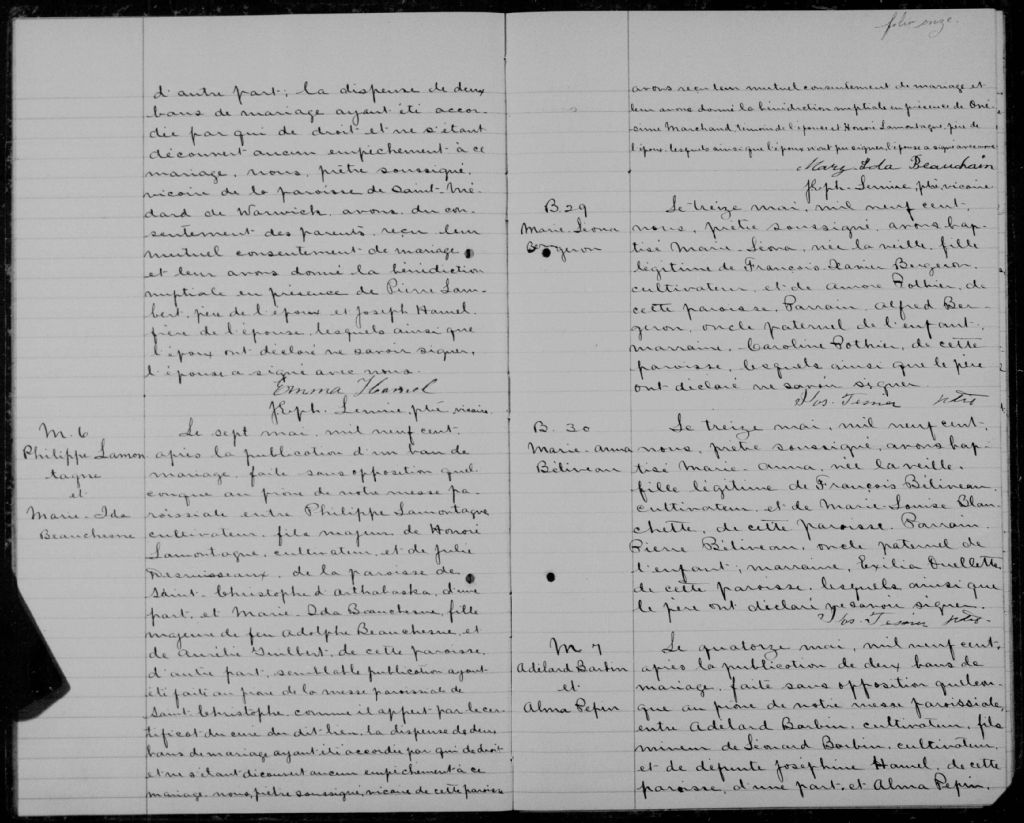 d'autre part; la dispense de deux
bans de mariage ayant été accor-
dée par qui de droit et ne s'étant
découvert aucun empêchement à ce
mariage, nous, prêtre soussigné,
vicaire de la paroisse de Saint-Mé-
dard de Warwick, avons, du con-
sentement des parents, reçu leur
mutuel consentement de mariage
et leur avons donné la bénédiction
nuptiale en présence de Pierre Lam-
bert, père de l'époux et Joseph Hamel,
frère de l'épouse, lesquels ainsi que
l'époux ont déclaré ne savoir signer,
l'épouse a signé avec nous.
Emma Hamel
Jos. Lemire, ptre, vicaire.
M. 6
Philippe Lamon
tagne
et
Marie-Ida
Beauchesne
Le sept mai, mil neuf cent,
après la publication d'un ban de
mariage, faite sans opposition quel-
conque au prône de notre messe pa-
roissiale entre Philippe Lamontagne,
cultivateur, fils majeur de Honoré
Lamontagne, cultivateur, et de Julie
Desruisseaux, de la paroisse de
Saint-Christophe d'Arthabaska, d'une
part, et Marie-Ida Beauchesne, fille
majeure de feu Adolphe Beauchesne, et
de Aurélie Guilbert, de cette paroisse,
d'autre part, semblable publication ayant
été faite au prône de la messe paroissiale de
Saint-Christophe, comme il appert par le cer-
tificat du curé du dit lieu, la dispense de deux
bans de mariage ayant été accordée par qui de droit
et ne s'étant découvert aucun empêchement à ce
mariage, nous, prêtre soussigné, vicaire de cette paroisse
folio onze.
avons reçu leur mutuel consentement de mariage et
leur avons donné la bénédiction nuptiale en présence de Oné-
sime Marchand, témoin de l'épouse et Honoré Lamontagne, père de
l'époux, lesquels ainsi que l'époux n'ont pu signer, l'épouse a signé avec nous.
Mary Ida Beauchain
Jos. Lemire, ptre, vicaire
B. 29
Marie-Léona
Bergeron
Le treize mai, mil neuf cent,
nous, prêtre soussigné, avons bap-
tisé Marie-Léona, née la veille, fille
légitime de François-Xavier Bergeron,
cultivateur, et de Aurore Pothier, de
cette paroisse. Parrain, Alfred Ber-
geron, oncle paternel de l'enfant,
marraine, Caroline Pothier, de cette
paroisse, lesquels ainsi que le père
ont déclaré ne savoir signer.
Jos. Tessier ptre
B. 30
Marie-Anna
Béliveau
Le treize mai, mil neuf cent,
nous, prêtre soussigné, avons bap-
tisé Marie-Anna, née la veille,
fille légitime de François Béliveau,
cultivateur, et de Marie-Louise Blan-
chette, de cette paroisse. Parrain,
Pierre Béliveau, oncle paternel de
l'enfant; marraine, Exilia Ouellette,
de cette paroisse, lesquels ainsi que
le père ont déclaré ne savoir signer.
Jos. Tessier ptre.
M 7
Adélard Barbin
et
Alma Pepin
Le quatorze mai, mil neuf cent,
après la publication de deux bans de
mariage, faite sans opposition quelcon-
que au prône de notre messe paroissiale,
entre Adélard Barbin, cultivateur, fils
mineur de Léonard Barbin, cultivateur,
et de défunte Joséphine Hamel, de cette
paroisse, d'une part, et Alma Pepin,